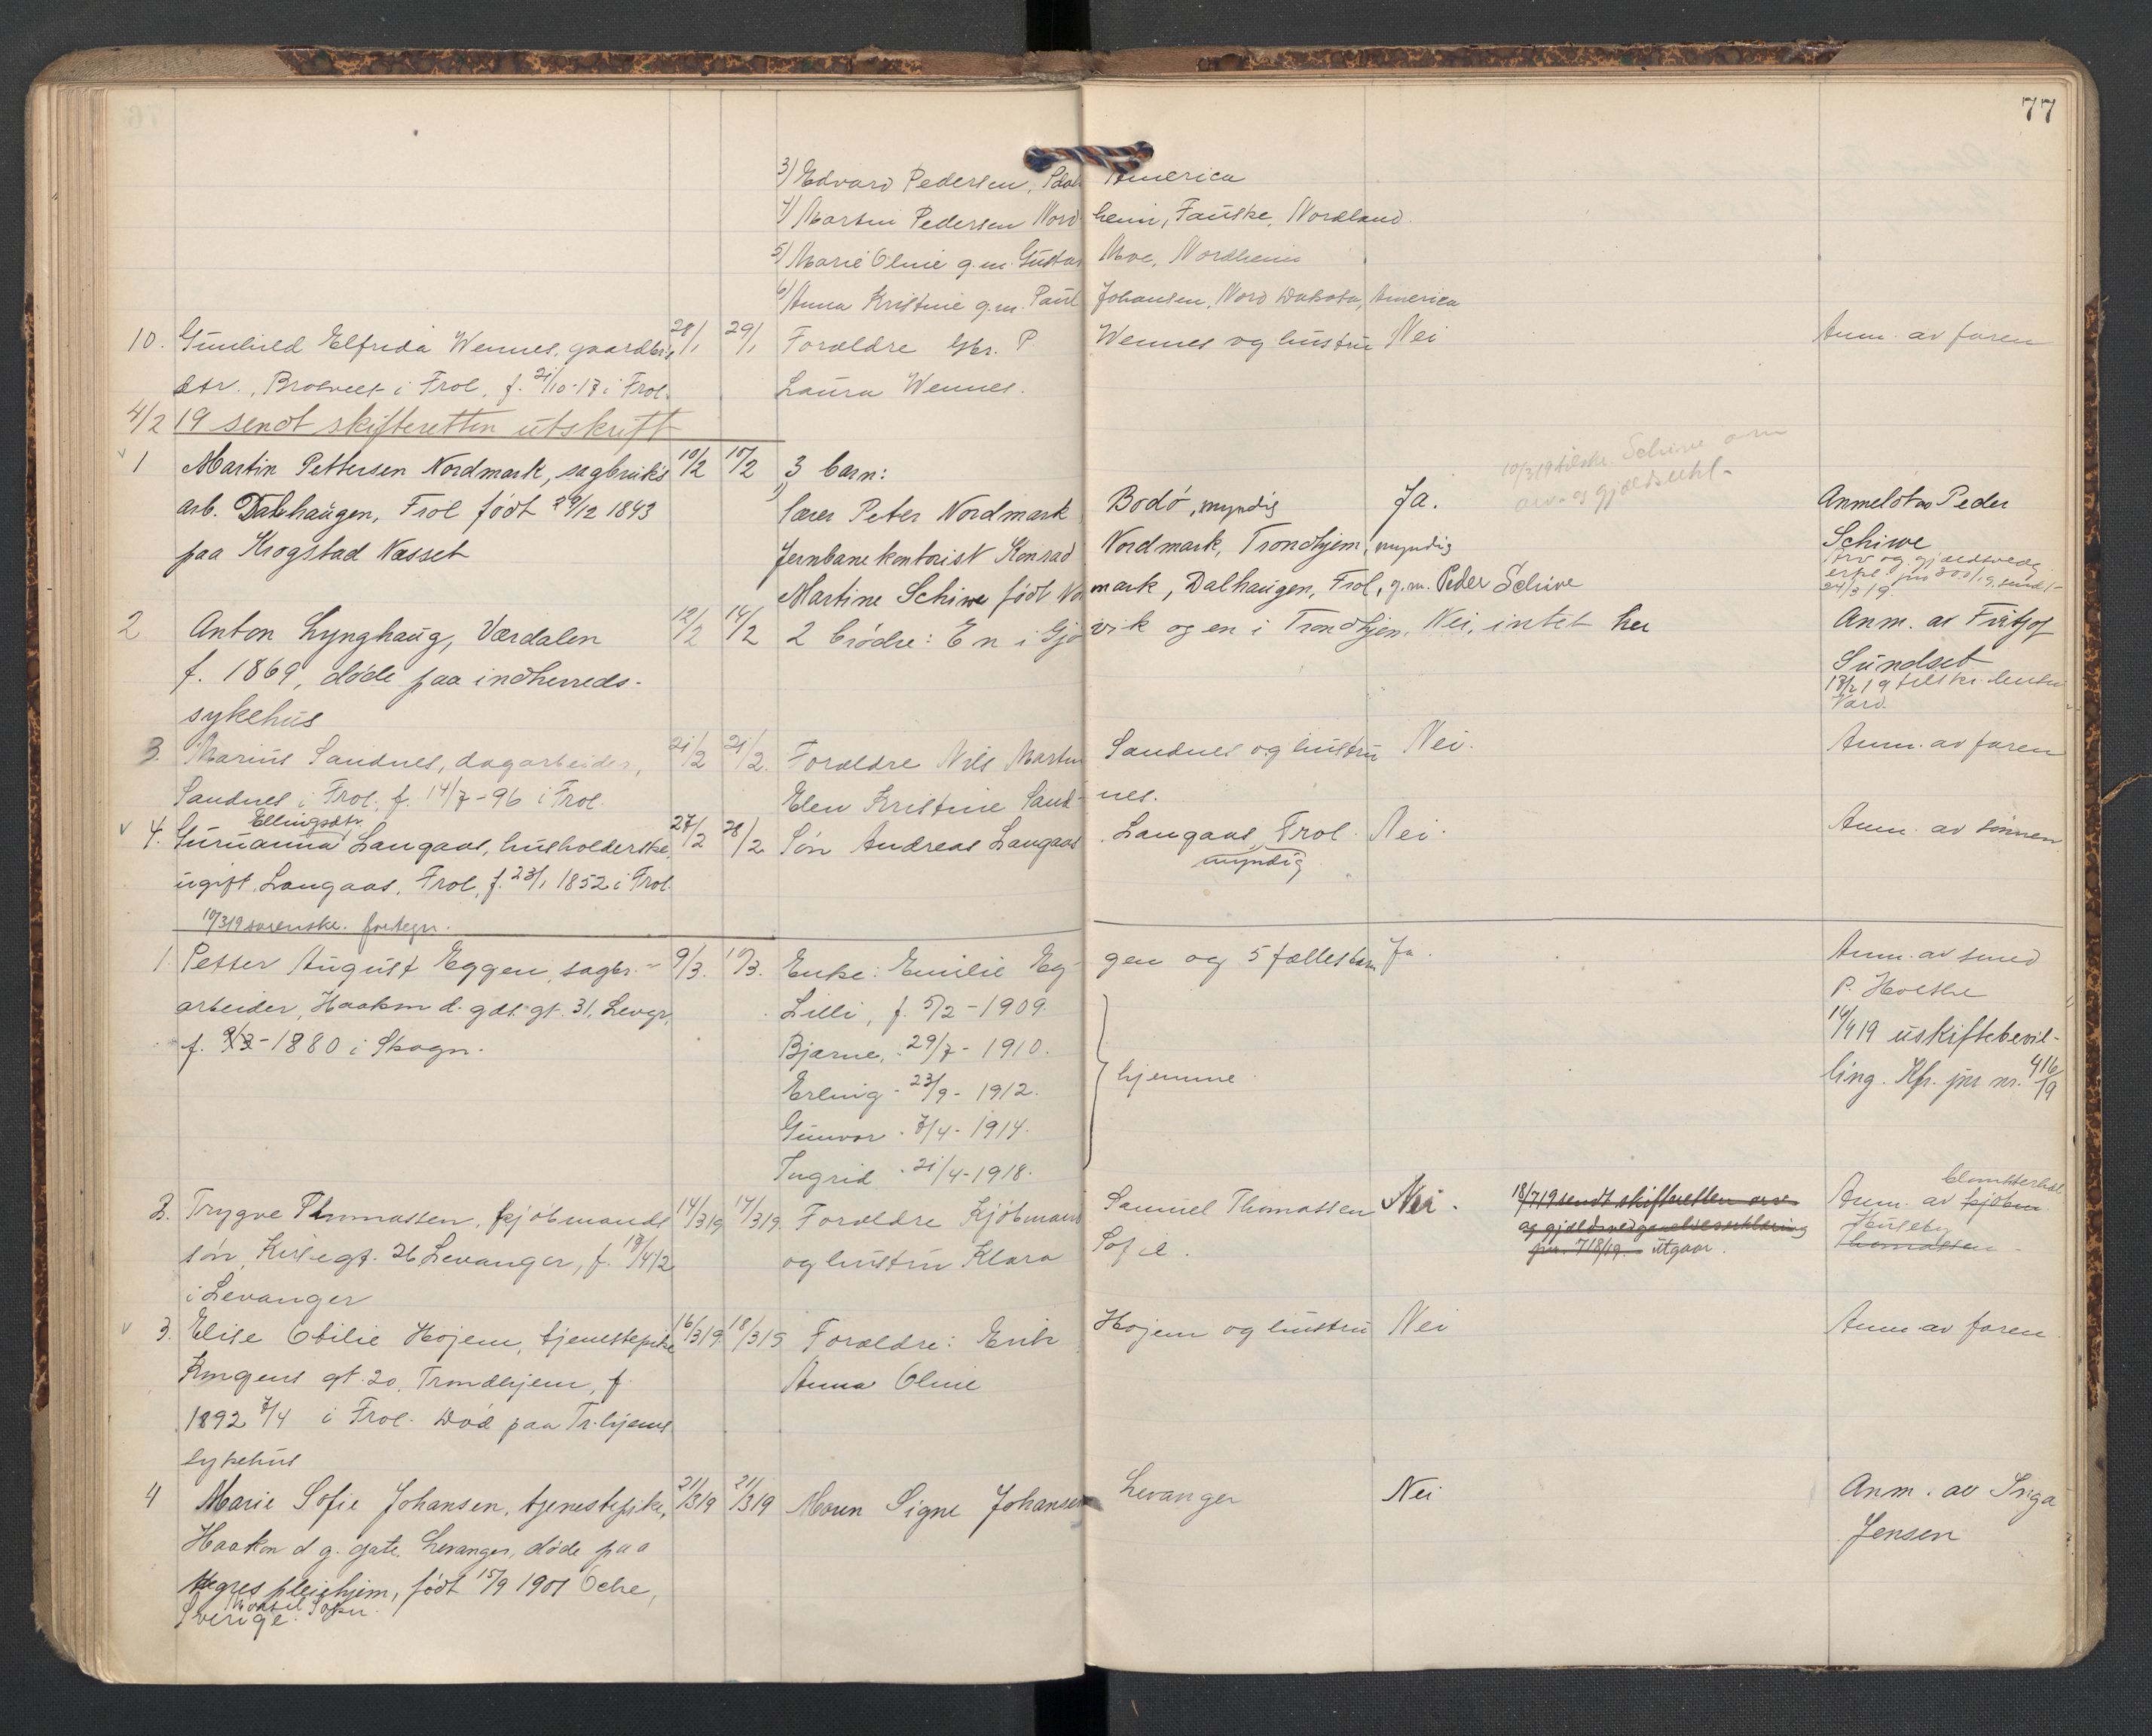 77
3/ Edvard Pedersen, America
4/ Martin Pedersen Nordheim, Fauske, Nordland.
5/ Marie Oline g.m. Gustav Moe, Nordheim
6/ Anna Kristine g.m. Paul Johansen, Nord Dakota, America
10. Gunhild Elfrida Wennes, gaardbr. 28/1 29/1 Forældre Gbr. P. Wennes og hustru Nei Anm. av faren
dtr., i Frol, f. 21/10-17 i Frol. Laura Wennes.
4/2 19 sendt skifteretten utskrift
1 Martin Pettersen Nordmark, sagbruks 10/2 10/2 3 barn: 10/3 19 tilskr. Schive om
arb. Dalhaugen, Frol født 29/12 1843 1) lærer Peter Nordmark Bodö, myndig Ja. arv- og gjældserkl- Anmeldt av Peder
paa Krogstad Næsset Jernbanekontorist Konrad Nordmark, Trondhjem, myndig Schiwe
Martine Schiwe født Nordmark, Dalhaugen, Frol, g.m. Peder Schive Arv og gjældsvedg
erkl. 24/3 19.
2 Anton Lynghaug, Værdalen 12/2 14/2 2 brödre: En i Gjövik og en i Trondhjem. Nei, intet her Anm. av Fritjof
f. 1869, döde paa indherreds- Sundset
sykehus 18/2 19 tilskr.
3. Marius Sandnes, dagarbeider, 21/2 21/2. Forældre Nils Martin Sandnes og hustru Nei. Anm. av faren
Sandnes i Frol. f. 14/7-96 i Frol. Elen Kristine Sandnes.
Ellingsdtr.
4. Guruanna Langaas, husholderske, 27/2 28/2 Sön Andreas Langaas Langaas, Frol. Nei. Anm. av sönnen
ugift, Langaas, Frol, f. 23/1 1852 i Frol. myndig
10/3 19 sorenskr. fortegn.
1. Petter August Eggen, sagbr.- 9/3. 10/3. Enke: Emilie Eggen og 5 fælles barn Ja. Anm. av smed
arbeider, Haakon d. gds. gt. 31, Levgr, Lilli, f. 5/2-1909. P. Holthe
f. 9/3-1880 i Skogn. Bjarne, - 29/7-1910. 14/4 19 uskiftebevil-
Erling - 23/9-1912. hjemme ling. Kfr. jnr nr. 416/19
Gunvor - 7/4-1914.
Ingrid - 21/4-1918.
2. Trygve Thomassen, kjöbmands 14/3 19 17/3 19. Forældre Kjöbmand Samuel Thomassen Nei. 18/7 19 sendt skifteretten arv- Anm. av kjöbm.
sön, Kirkegt. 26 Levanger, f. 18/4 12 og hustru Klara Sofie. og gjældsvedgaaelseserklæring Huseby
i Levanger jnr. 718/19. utgaar. Thomassen
3. Elise Otilie Höjem, tjenestepike 16/3 19 18/3 19 Forældre: Erik Höjem og hustru Nei Anm. av faren
Kongens gt. 20, Trondhjem, f. Anna Oline
1892 7/4 i Frol. Död paa Tr.hjems
sykehus
4 Marie Sofie Johansen, tjenestepike, 21/3 19 21/3 19 Moren Signe Johansen Levanger Nei Anm. av Inga
Haakon d g. gate, Levanger, döde paa Jensen
Hegres pleiehjem, födt 15/9 1901
Sverige.